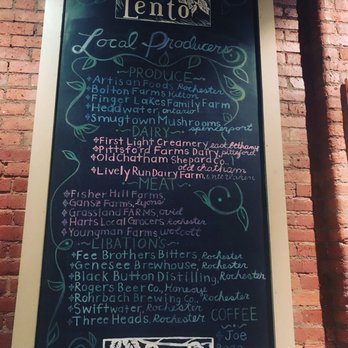 Lento
Local Producers
PRODUCE
Artisan Foods, Rochester
Bolton Farms Hilton
Finger Lakes Family Farm
Headwater ontario
Smugtown Mushrooms
spencerport
DAIRY
First Light Creamery east bethany
Pittsford Farms Dairy, pittsford
Old Chatham Shepard Co.
old chatham
Lively Run Dairy Farm interlaken
MEAT
Fisher Hill Farms
Ganse Farms, lyons
Grassland FARMS, ovid
Harts Local Grocers, Rochester
Youngman Farms wolcott
LIBATIONS
Fee Brothers Bitters, Rochester
Genesee Brewhouse, Rochester
Black Button Distilling, Rochester
Rogers Beer Co., Honeoye
Rohrbach Brewing Co., Rochester
Swiftwater, Rochester
Three Heads, Rochester
COFFEE
Joe